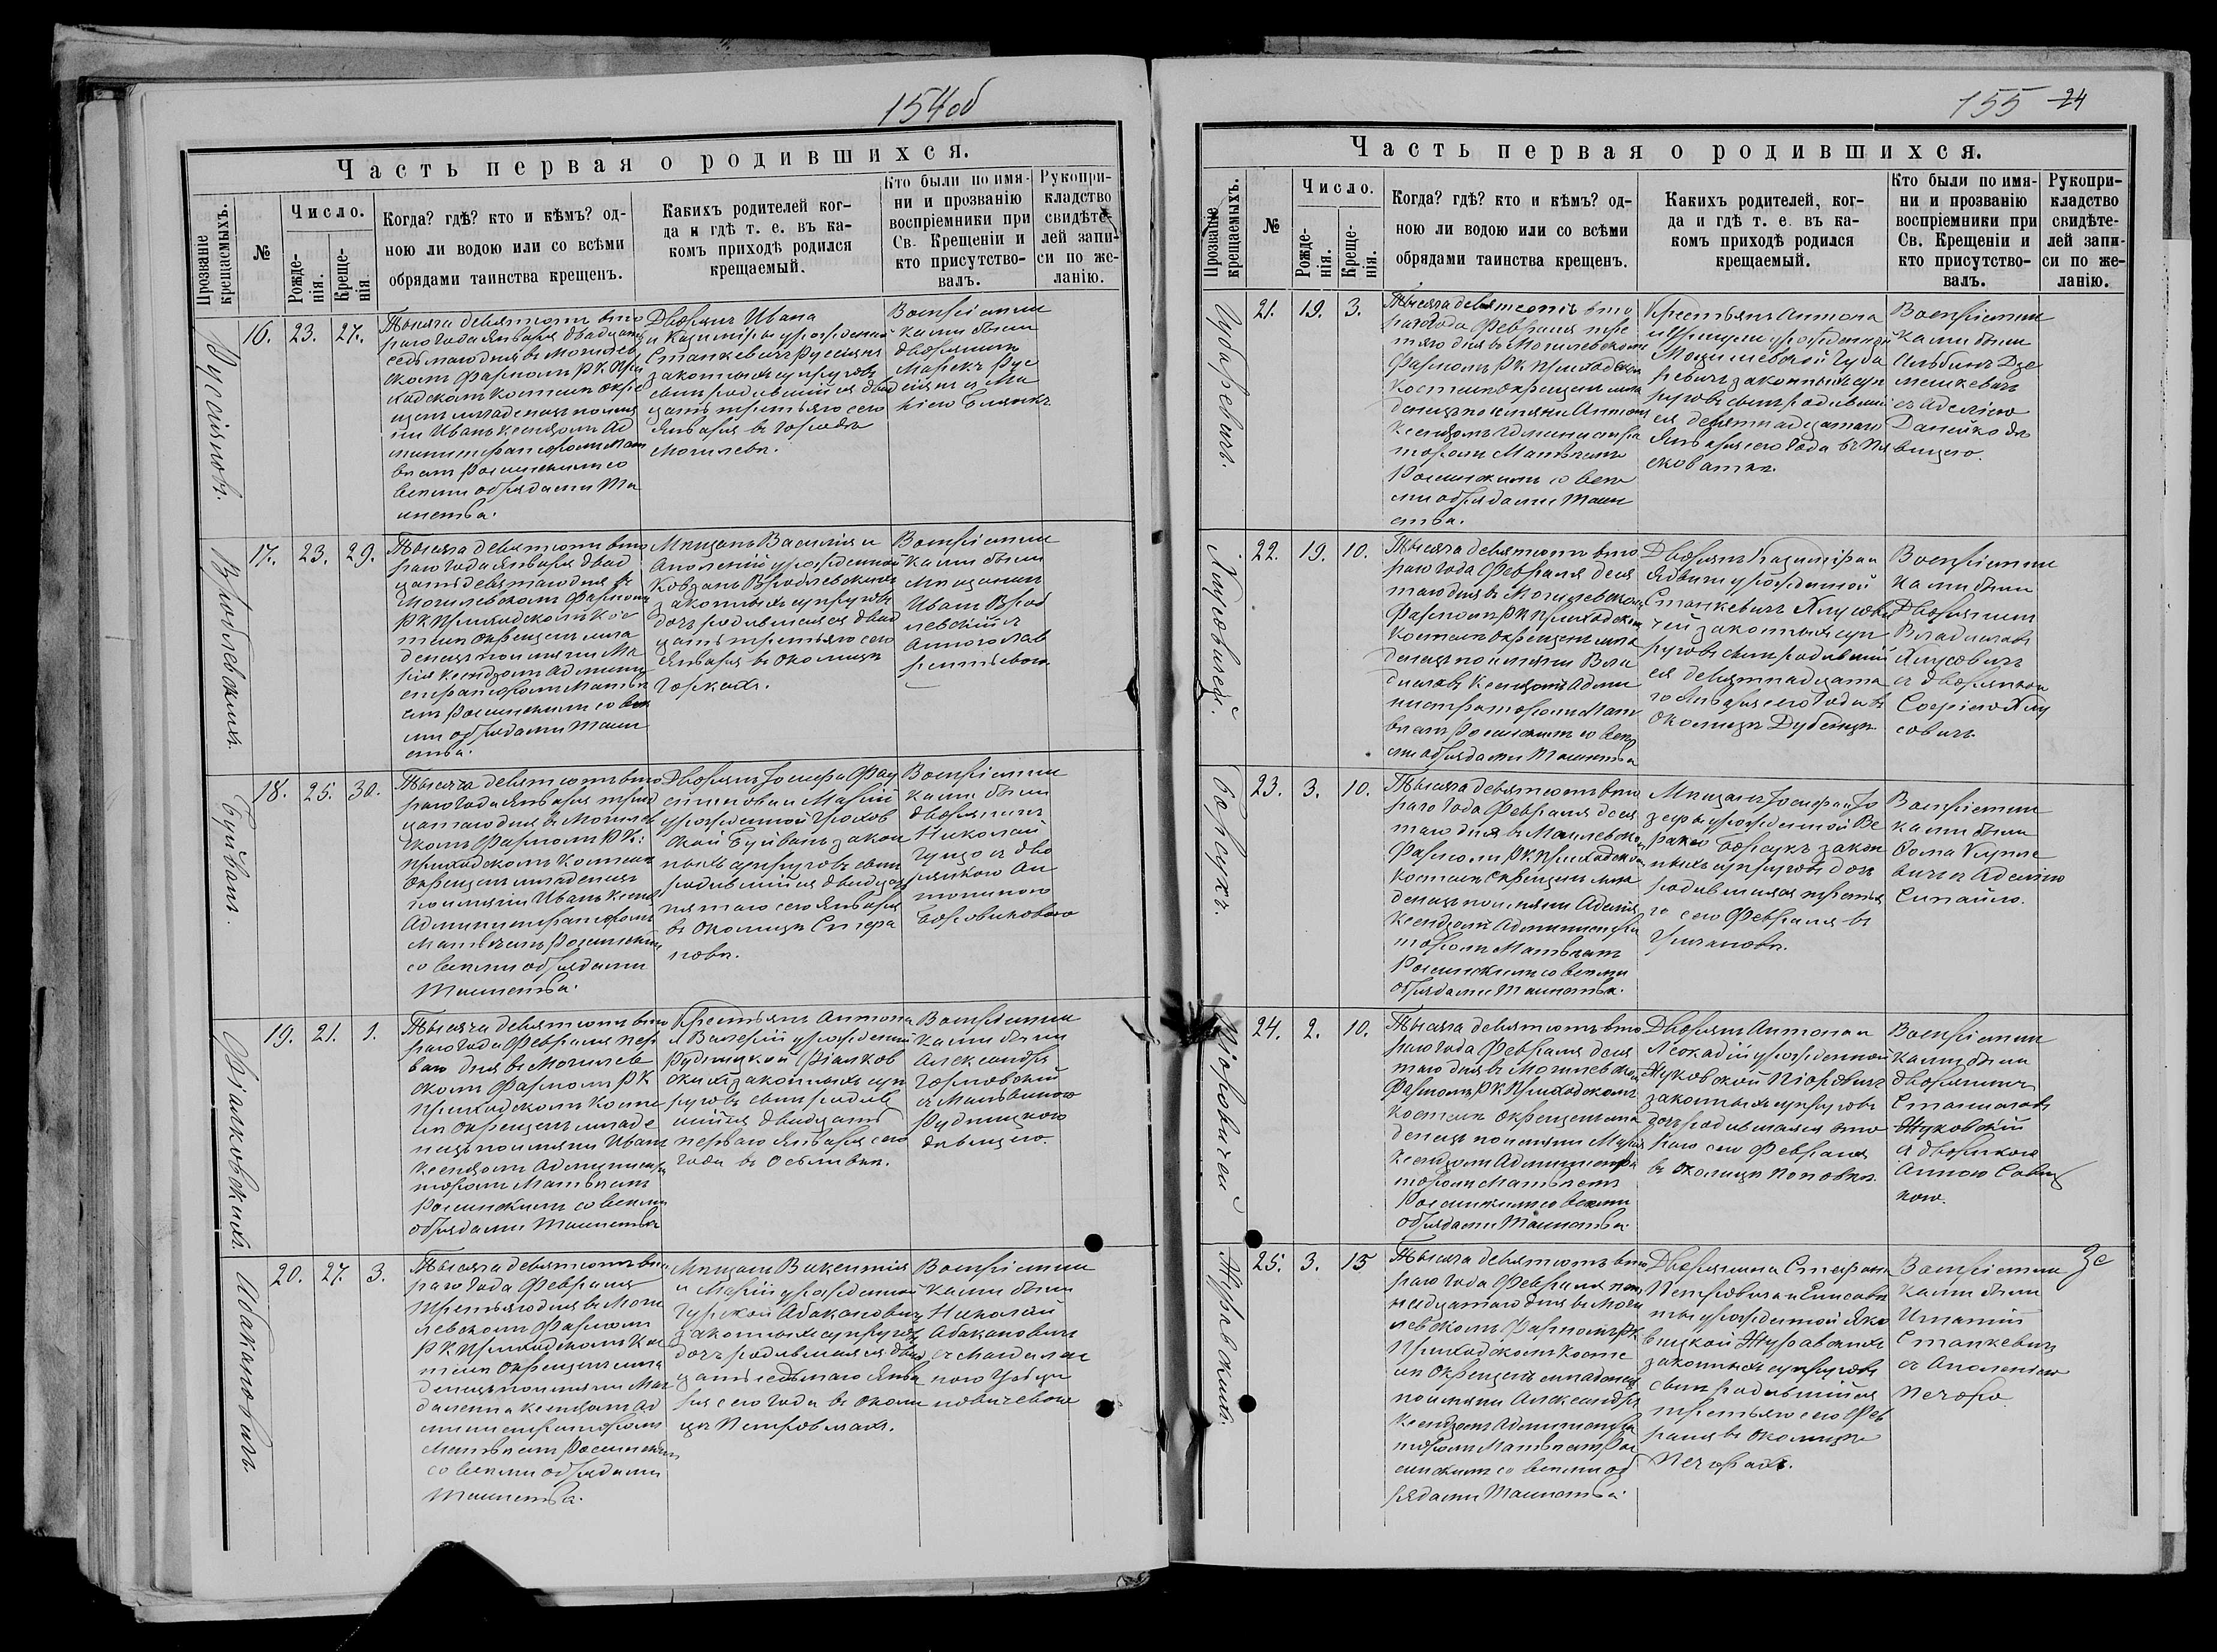 154об
Часть первая о родившихся.
Прозваніе крещаемыхъ.
№
Число.
Рожде-
нія.
Креще-
нія
Когда? гдѣ? кто и кѣмъ? од-
ною ли водою или со всѣми
обрядами таинства крещенъ.
Какихъ родителей ког-
да и гдѣ т. е. въ ка-
комъ приходѣ родился
крещаемый.
Кто были по имя-
ни и прозванію
воспріемники при
Св. Крещеніи и
кто присутство-
валъ.
Рукопри-
кладство
свидѣте-
лей запи-
си по же-
ланію.
16. 23. 27.
Тысяча девятсотъ вто
раго года Января двадцать
седьмаго дня въ Могилев
скомъ Фарномъ РК При
ходскомъ костелѣ окре
щенъ младенецъ по имя
ни Иванъ ксендзомъ Ад
министраторомъ Мат
со
всѣми обрядами Та
инства.
Дворянъ Ивана
и Казиміры урожденной
Станкевичъ
законныхъ супруговъ
сынъ родившійся двад
цать третьяго сего
Января въ городѣ
Могилевѣ.
Воспріемни
ками были
дворянинъ
17. 23. 29.
Врублевскихъ.
Тысяча девятсотъ вто
раго года Января двад
цать девятаго дня въ
Могилевскомъ Фарномъ
РК Приходскомъ Кос
телѣ окрещенъ мла
денецъ по имяни Ма
рія ксендзомъ Админи
страторомъ Матвѣ
емъ со всѣ
ми обрядами Таин
ства.
Мѣщанъ Василія и
Аполеніи урожденной
Врублевскихъ
законныхъ супруговъ
дочь родившаяся двад
цать третьяго сего
Января въ околицѣ
Горкахъ.
Воспріемни
ками были
мѣщанинъ
Иванъ Вруб
левскій с
Анною Лав
рентьевою.
18. 25. 30.
Буйванъ.
Тысяча девятсотъ вто
раго года Января трид
цатаго дня въ Могилев
скомъ Фарномъ РК.
Приходскомъ Костелѣ
окрещенъ младенецъ
по имяни Иванъ ксенд
Администраторомъ
со всѣми обрядами
Таинства.
Дворянъ Іосифа Фау
стинова и Маріи
урожденной
Буйванъ закон
ныхъ супруговъ сынъ
родившійся двадцать
пятаго сего Января
въ околицѣ
Воспріемни
ками были
дворянинъ
Николай
с дво
рянкою Ан
тониною
19. 21. 1.
Фіалковскихъ.
Тысяча девятсотъ вто
раго года Февраля пер
ваго дня въ Могилев
скомъ Фарномъ РК
Приходскомъ Косте
лѣ окрещенъ младе
нецъ по имяни Иванъ
ксендзомъ Администра
торомъ Матвѣемъ
со всѣми
обрядами Таинства
Крестьянъ Антона
и Валеріи урожденной
Рудницкой Фіалков
скихъ законныхъ суп
руговъ сынъ родив
шійся двадцать
перваго Января сего
года въ
Воспріемни
ками были
Александръ
Горновскій
с Мальвиною
Рудницкою
дѣвицею.
20. 27. 3.
Абакановичъ.
Тысяча девятсотъ вто
раго года Февраля
третьяго дня въ Моги
левскомъ Фарномъ
РК Приходскомъ Кос
телѣ окрещенъ мла
денецъ по имяни Маг
далена ксендзомъ Ад
министраторомъ
со всѣми обрядами
Таинства.
Мѣщанъ Викентія
и Маріи урожденной
Гурской Абакановичъ
законныхъ супруговъ
дочь родившаяся двад
цать седьмаго Янва
ря сего года въ околи
цѣ
Воспріемни
ками были
Николай
Абакановичъ
155 24
Часть первая о родившихся.
Прозваніе крещаемыхъ.
№
Число.
Рожде-
нія.
Креще-
нія.
Когда? гдѣ? кто и кѣмъ? од-
ною ли водою или со всѣми
обрядами таинства крещенъ.
Какихъ родителей, ког-
да и гдѣ т. е. въ ка-
комъ приходѣ родился
крещаемый.
Кто были по имя-
ни и прозванію
воспріемники при
Св. Крещеніи и
кто присутство-
валъ.
Рукопри-
кладство
свидѣте-
лей запи-
си по же-
ланію.
21. 19. 3.
Губаревичъ.
Тысяча девятсотъ вто
раго года Февраля тре
тяго дня въ Могилевскомъ
Фарномъ РК Приходскомъ
костелѣ окрещенъ мла
денецъ по имяни Антонъ
ксендзомъ Администра
торомъ Матвѣемъ
со всѣ
ми обрядами Таин
ства.
Крестьянъ Антона
урожденной
Губа
ревичъ законныхъ суп
руговъ сынъ родивший
ся девятнадцатаго
Января сего года
Воспріемни
ками были
Альбинъ
с Аделіею
дѣ
вицею.
22. 19. 10.
Хлусовичей
Тысяча девятсотъ вто
раго года Февраля деся
таго дня въ Могилевскомъ
Фарномъ РК Приходскомъ
костелѣ окрещенъ мла
денецъ по имяни Вла
диславъ ксендзомъ Адми
нистраторомъ Мат
со всѣ
ми обрядами Таинства
Дворянъ Казиміра и
Ядвиги урожденной
Станкевичъ Хлусови
чей законныхъ суп
руговъ сынъ родившій
ся девятнадцата
го Января сего года въ
околицѣ
Воспріемни
ками были
Дворянинъ
Владиславъ
Хлусовичъ
с дворянкою
Софіею Хлу
совичъ
23. 3. 10.
Борсукъ.
Тысяча девятсотъ вто
раго года Февраля деся
таго дня въ Могилевском
Фарномъ РК Приходском
костелѣ окрещенъ мла
денецъ по имяни Аделія
ксендзомъ Администра
торомъ Матвѣемъ
со всѣми
обрядами Таинства.
Мѣщанъ Іосифа и Іо
зефы урожденной Ве
Борсукъ закон
ныхъ супруговъ дочь
родившаяся третья
го сего Февраля въ
Воспріемни
ками были
с Аделіею
24. 2. 10.
Піоровичей
Тысяча девятсотъ вто
раго года Февраля деся
таго дня въ Могилевском
Фарномъ РК Приходскомъ
костелѣ окрещенъ мла
денецъ по имяни Марія
ксендзомъ Администра
торомъ Матвѣемъ
со всѣми
обрядами Таинства.
Дворянъ Антона и
Леокадіи урожденной
Жуковской Піоровичъ
законныхъ супруговъ
дочь родившаяся вто
раго сего Февраля
въ околицѣ Поповкѣ.
Воспріемни
ками были
дворянинъ
Станиславъ
Жуковскій
с дворянкою
Анною Савиц
кою.
25. 3. 15
Журавскихъ.
Тысяча девятсотъ вто
раго года Февраля пят
надцатаго дня въ Моги
левскомъ Фарномъ РК
Приходскомъ Косте
лѣ окрещенъ младенецъ
по имяни Александръ
ксендзомъ Администра
торомъ Матвѣемъ
со всѣми об
рядами Таинства.
Дворянина Стефана
Петровича и Елисаве
ты урожденной Яко
Журавскихъ
законныхъ супруговъ
сынъ родившійся
третьяго сего Фев
раля въ околицѣ
Печорахъ.
Воспріемни
ками были
Игнатій
Станкевичъ
с Аполеніею
Печоро.